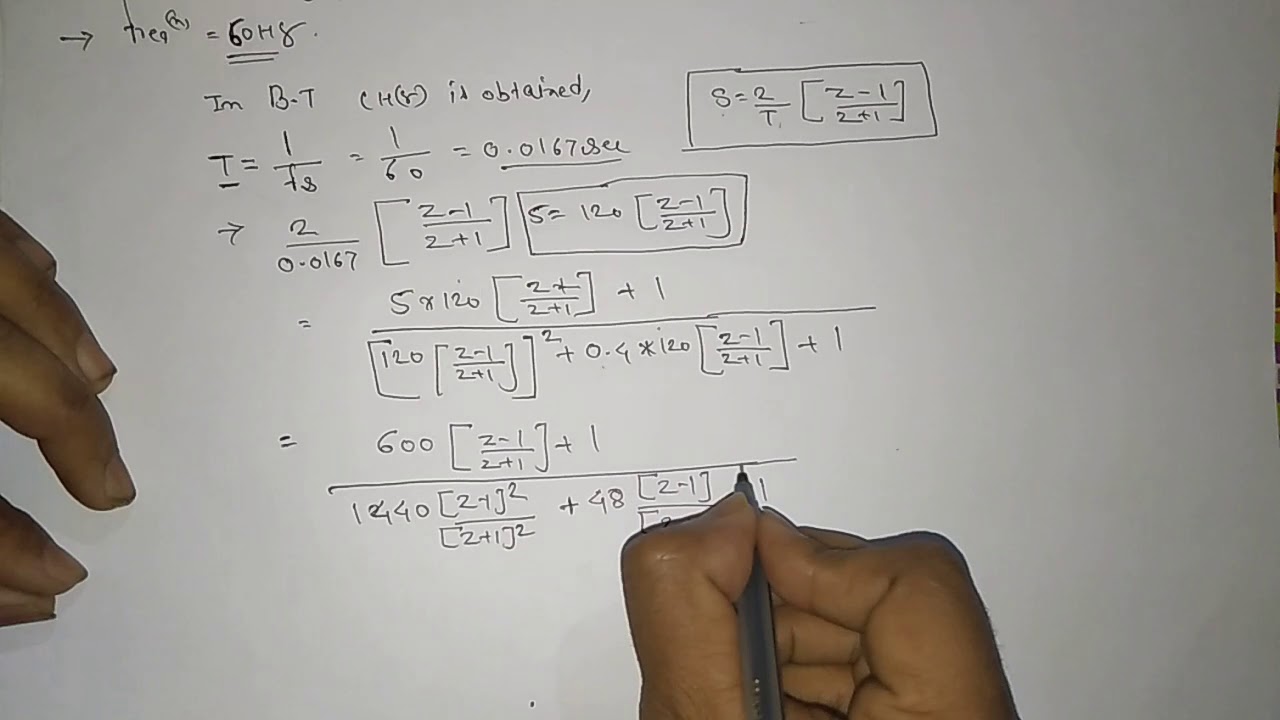 → freq(n) = 60Hz.
In B-T (H(s)) is obtained,
S = 2/T [z-1/z+1]
T = 1/fs = 1/60 = 0.0167 sec
→ 2/0.0167 [z-1/z+1] S = 120 [z-1/z+1]
= 5*120 [z-1/z+1] + 1
[120 [z-1/z+1]]² + 0.4*120 [z-1/z+1] + 1
= 600 [z-1/z+1] + 1
14440 [z-1]²/[z+1]² + 48 [z-1]/[z 1